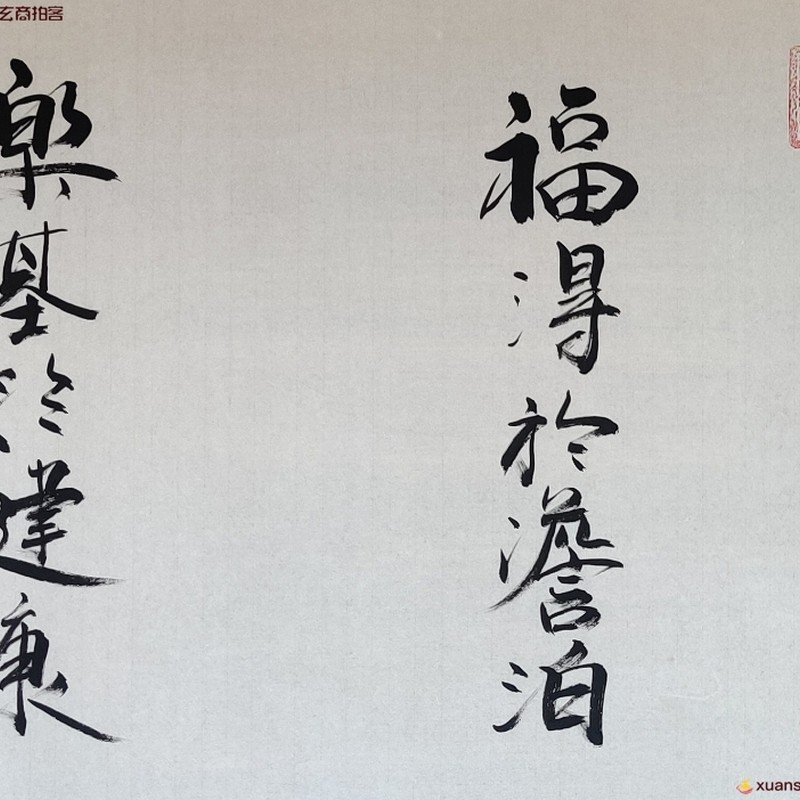 福得於澹泊
樂基於健康
玄商拍客
xuans